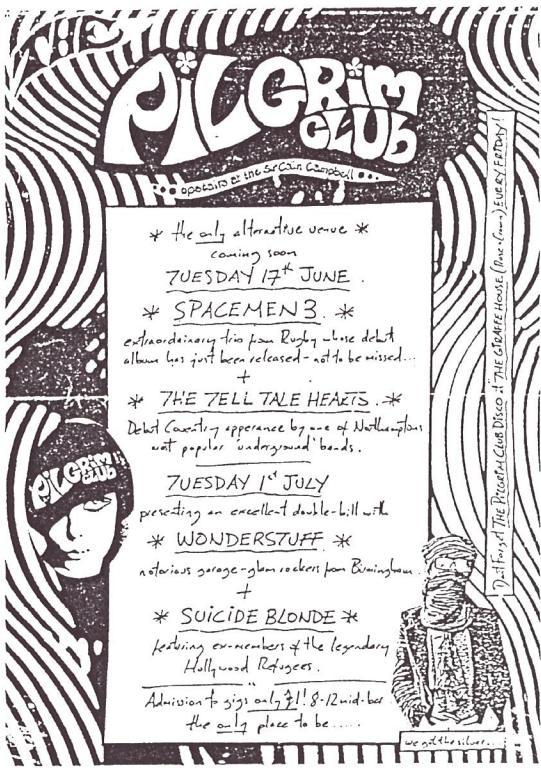 PILGRIM
CLUB
upstairs at the Sir Colin Campbell
* the only alternative venue *
coming soon
TUESDAY 17th JUNE.
* SPACEMEN 3. *
extraordinary trio from Rugby whose debut
album has just been released - not to be missed...
+
* THE TELL TALE HEARTS. *
Debut Coventry apperance by one of Northamptons
most popular 'underground' bands.
TUESDAY 1st JULY
presenting an excellent double-bill with
* WONDERSTUFF *
notorious garage-glam rockers from Birmingham..
+
* SUICIDE BLONDE *
featuring ex-members of the legendary
Hollywood Refugees.
Admission to gigs only £1! 8-12 mid-bar
the only place to be.....
Don't Forget THE PILGRIM CLUB DISCO at THE GIRAFFE HOUSE. (Dove + Crown) EVERY FRIDAY!
PILGRIM
CLUB
we got the silver...